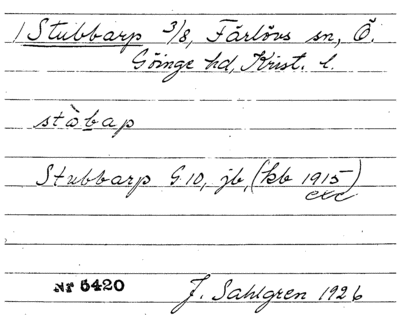 / Stubbarp 3/8, Färlövs sn, Ö.
Göinge hd, Krist. l.
stàbap
Stubbarp G10, jb, (kb 1915)
exc
Nr 5420
J. Sahlgren 1926